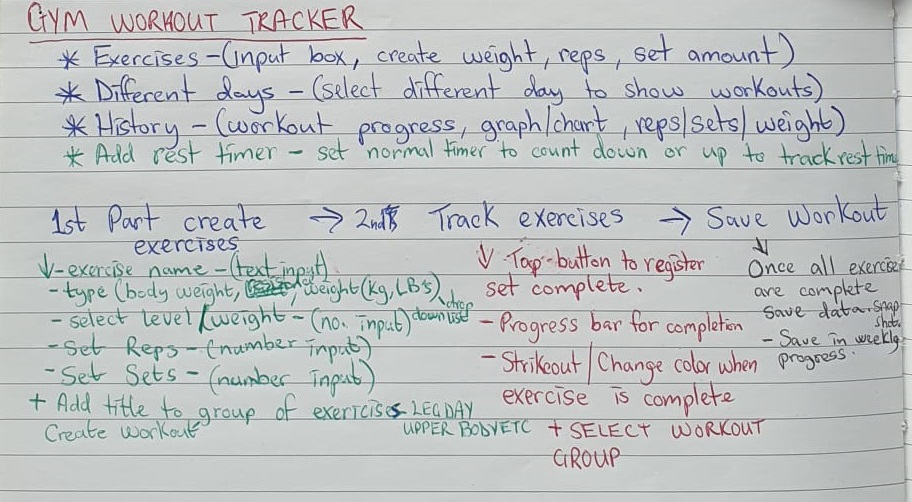 GYM WORKOUT TRACKER
* Exercises - (input box, create weight, reps, set amount)
* Different days - (select different day to show workouts)
* History - (workout progress, graph/chart, reps/sets/weight)
* Add rest timer - set normal timer to count down or up to track rest tim
1st Part create exercises → 2nd Track exercises → Save Workout
↓ - exercise name - (text input)
- type (body weight, weight (kg, LB's) drop down list
- select level/weight - (no. input)
- Set Reps - (number input)
- Set Sets - (number input)
+ Add title to group of exercises - LEG DAY
UPPER BODY ETC
Create workout
↓ - Tap - button to register
set complete.
- Progress bar for completion
- Strikeout/Change color when
exercise is complete
+ SELECT WORKOUT
GROUP
↓
Once all exercise
are complete
save data - snap
shot.
- Save in weekly
progress.